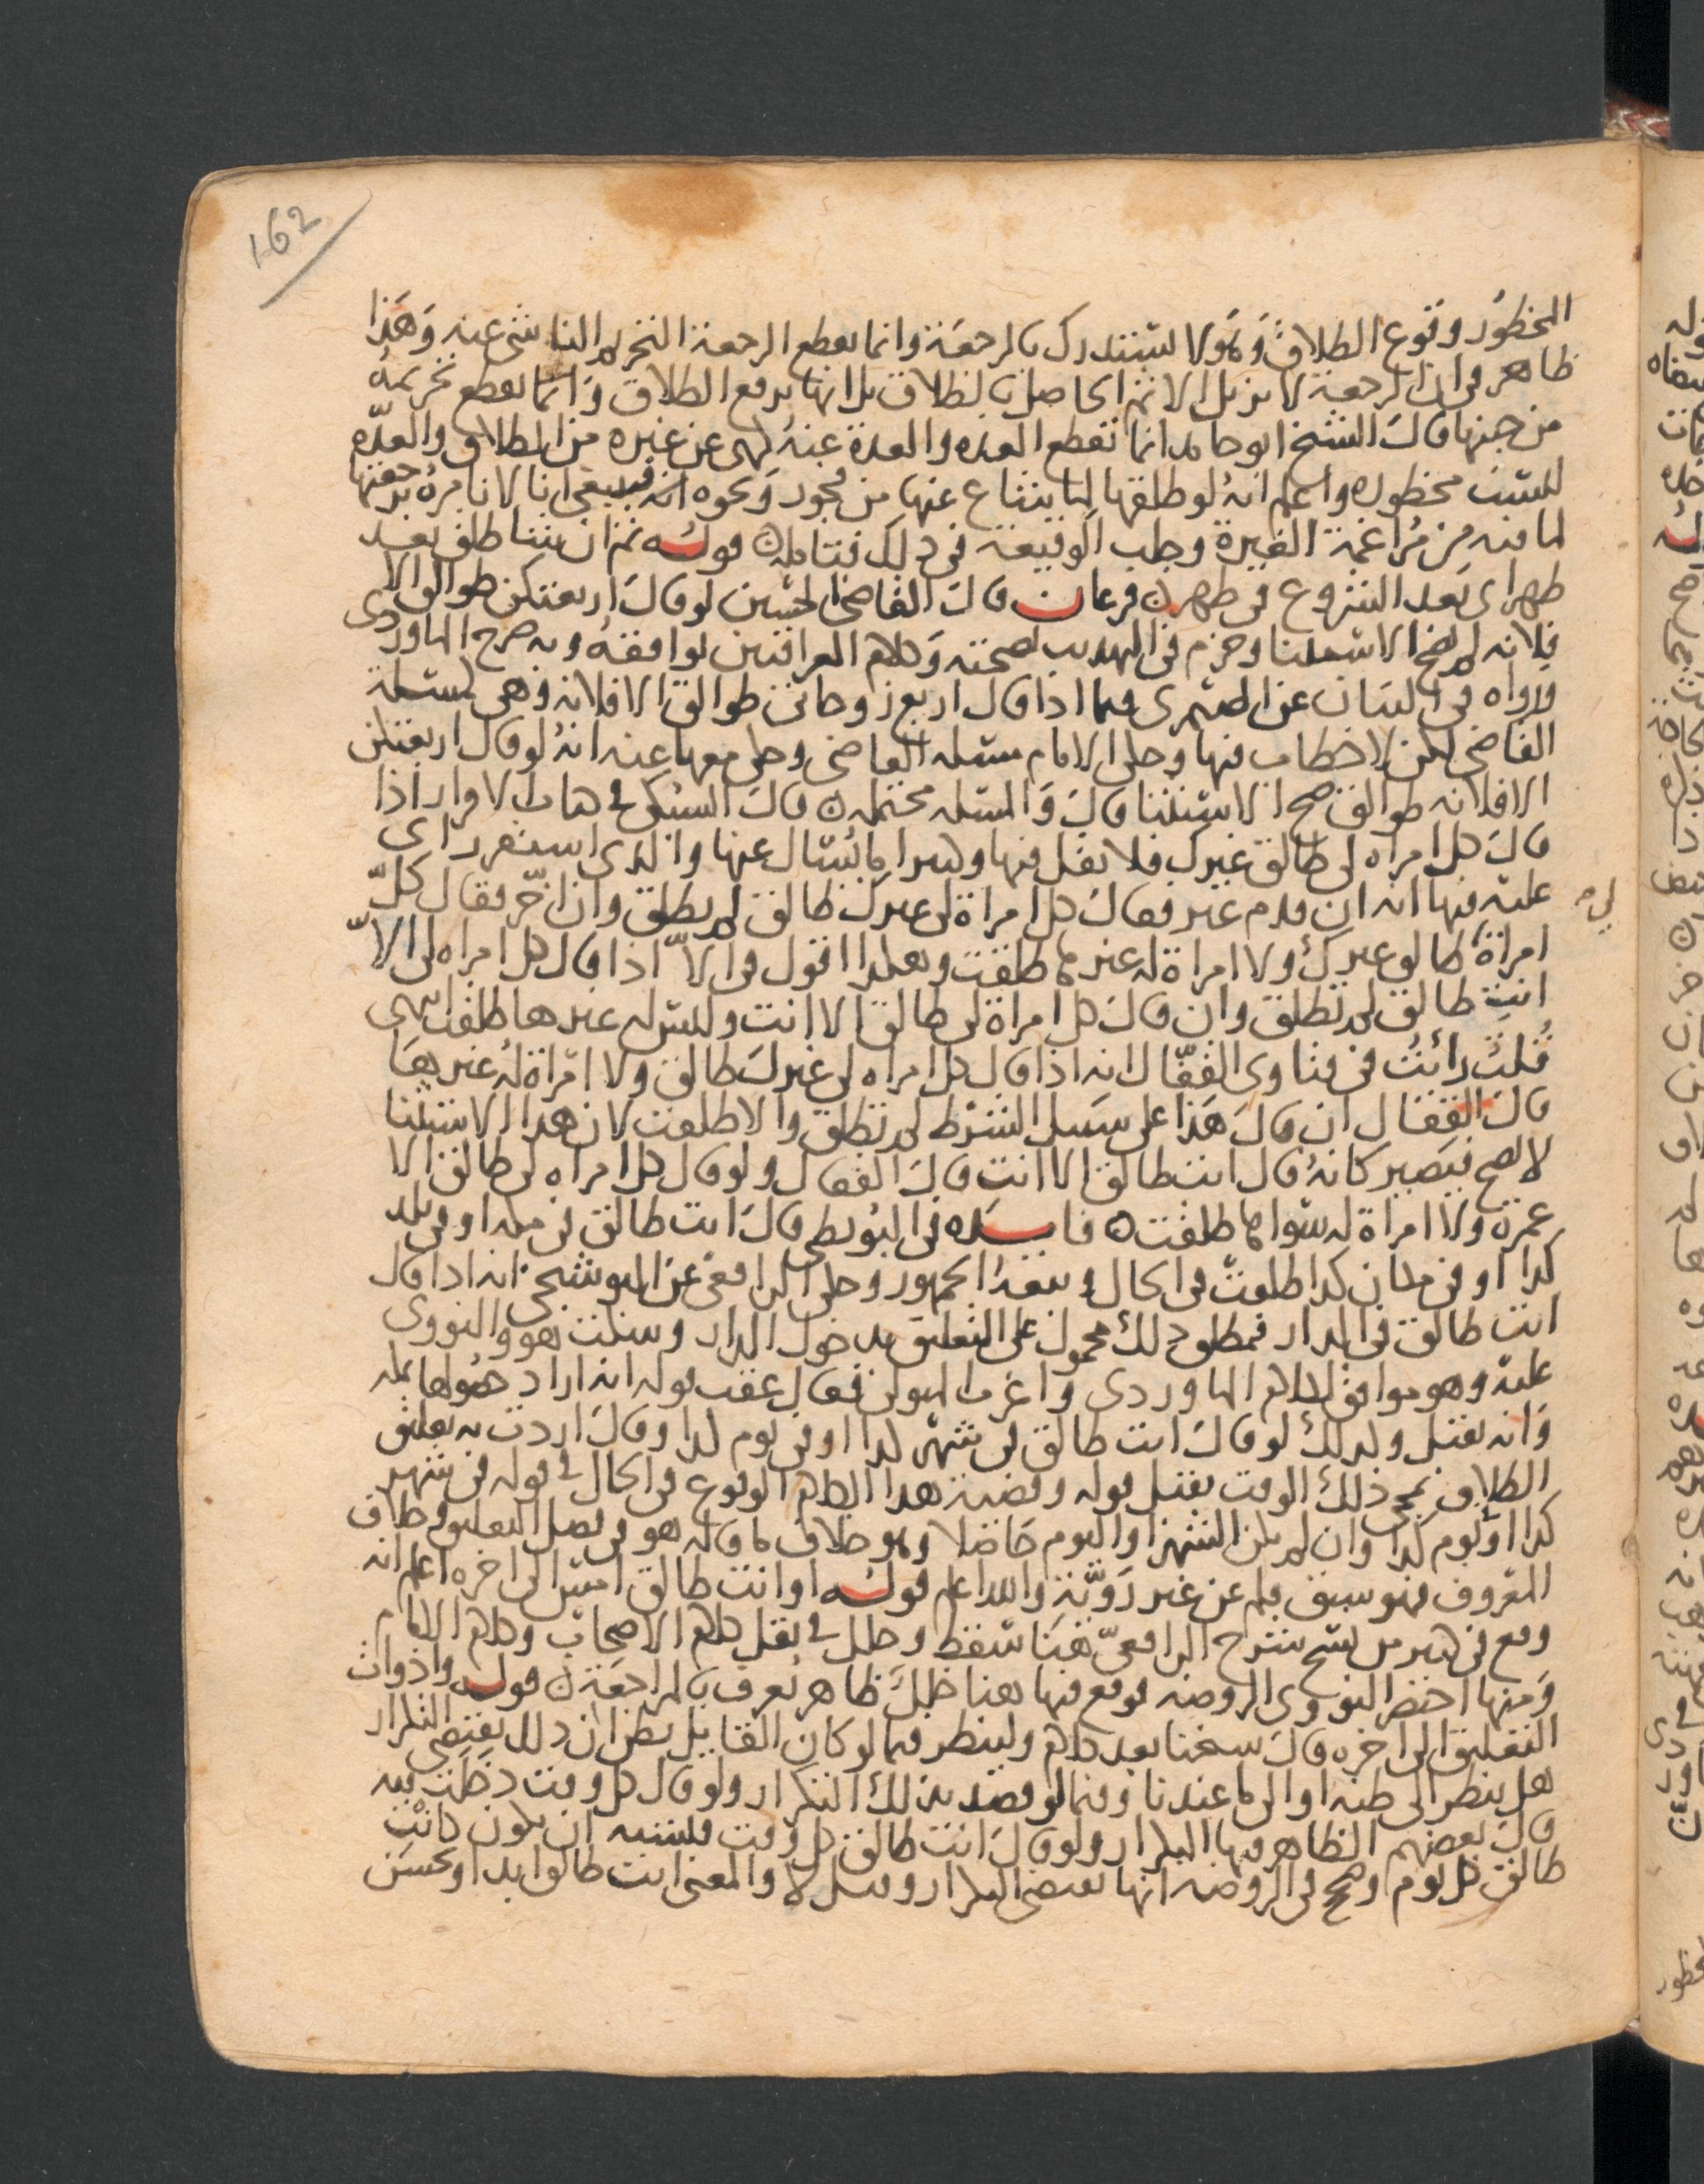 162
المحظور وقوع الطلاق وهو لا يستدرك بالرجعة وانما يقطع الرجعة التحريم الناشى عنه وهذا
ظاهر فى ان الرجعة لا تزيل الاثم الحاصل بالطلاق بل انها ترفع الطلاق وانما يقطع تحريمه
من حينها قال الشيخ ابو حامد انما تقطع العدة والعدة عنه نهى عن غيره من الطلاق والعدة
ليست محظوره واعلم انه لو طلقها لما يشاع عنها من فجور ونحوه انه فينبغى انا لا نامره برجعتها
لما فيه من مراغمة الغيرة وجلب الوقيعة فى ذلك فتامله قوله ثم ان شا طلق بعد
طهر اى بعد الشروع فى طهر فرعان قال القاضى الحسين لو قال اربعتكن طوالق الا
فلانه لم يصح الاستثنا وجزم فى التهذيب بصحته وكلام العراقيين يوافقه وبه صرح الماوردى
ورواه فى البيان عن الصيمرى فيما اذا قال اربع زوجاتى طوالق الا فلانه وهى مسئلة
القاضى لكن لا خطاب فيها وحكى الامام مسئلة القاضى وحكى معها عنه انه لو قال اربعتكن
الا فلانه طوالق صح الاستثنا قال والمسئله محتمله قال السبكى فى هناك الاقرار اذا
قال كل امراه لى طالق غيرك فلا نقل فيها وكثيرا ما يسال عنها والذى استقر راى
عليه فيها انه ان قدم غير فقال كل امراة لى غيرك طالق لم يطلق وان اخر فقال كل
امراة طالق غيرك ولا امراة له غيرها طلقت وهكذا اقول فى الا اذا قال كل امراه لى الا
لى
انت طالق لم تطلق وان قال كل امراة لى طالق الا انت وليس له غيرها طلقت انتهى
قلت رائت فى فتاوى القفال انه اذا قال كل امراه لى غيرك طالق ولا امراة له غيرها
قال القفال ان قال هذا على سبيل الشرط لم تطلق والا طلقت لان هذا الاستثنا
لا يصح فيصير كانه قال انت طالق الا انت قال القفال ولو قال كل امراه لى طالق الا
عمرة ولا امراة له سواها طلقت فايده فى البويطى قال انت طالق فى مكه او فى بلد
كذا او فى مكان كذا طلقت فى الحال وتبعه الجمهور وحكى الرافعى عن البوشنجى انه اذا قال
انت طالق فى الدار فمطلق ذلك محمول على التعليق بدخول الدار وسكت هو والنووى
عليه وهو موافق لكلام الماوردى فقال عقب قوله انه اراد حصولها بمكه
وانه يقبل وكذلك لو قال انت طالق فى شهر كذا او فى يوم كذا وقال اردت به تعليق
الطلاق بمجى ذلك الوقت يقبل قوله وقضية هذا الكلام الوقوع فى الحال فى قوله فى شهر
كذا او يوم كذا وان لم يكن الشهر او اليوم حاضلا وهو خلاف ما قاله هو فى فصل التعليق وخلاف
المعروف فهو سبق قلم عن غير روية والله اعلم قوله او انت طالق امس الى اخره اعلم انه
وقع فى كثير من نسخ شرح الرافعى هنا سقط وخلل فى نقل كلام الاصحاب وكلام الامام
ومنها اختصر النووى الروضه فوقع فيها هنا خلل ظاهر يعرف بالمراجعة قوله وادوات
التعليق الى اخره قال شيخنا بعد كلام ولينظر فيما لو كان القايل يظن ان ذلك يقتضى التكرار
هل ينظر الى ظنه او الى ما عندنا وفيما لو قصد بذلك التكرار ولو قال كل وقت دخلت فيه
قال بعضهم الظاهر فيها التكرار ولو قال انت طالق كل وقت فليشبه ان يكون كانت
طالق كل يوم وصحح فى الروضه انها تقتضى التكرار وقيل لا والمعنى انت طالق ابدا ويحسن